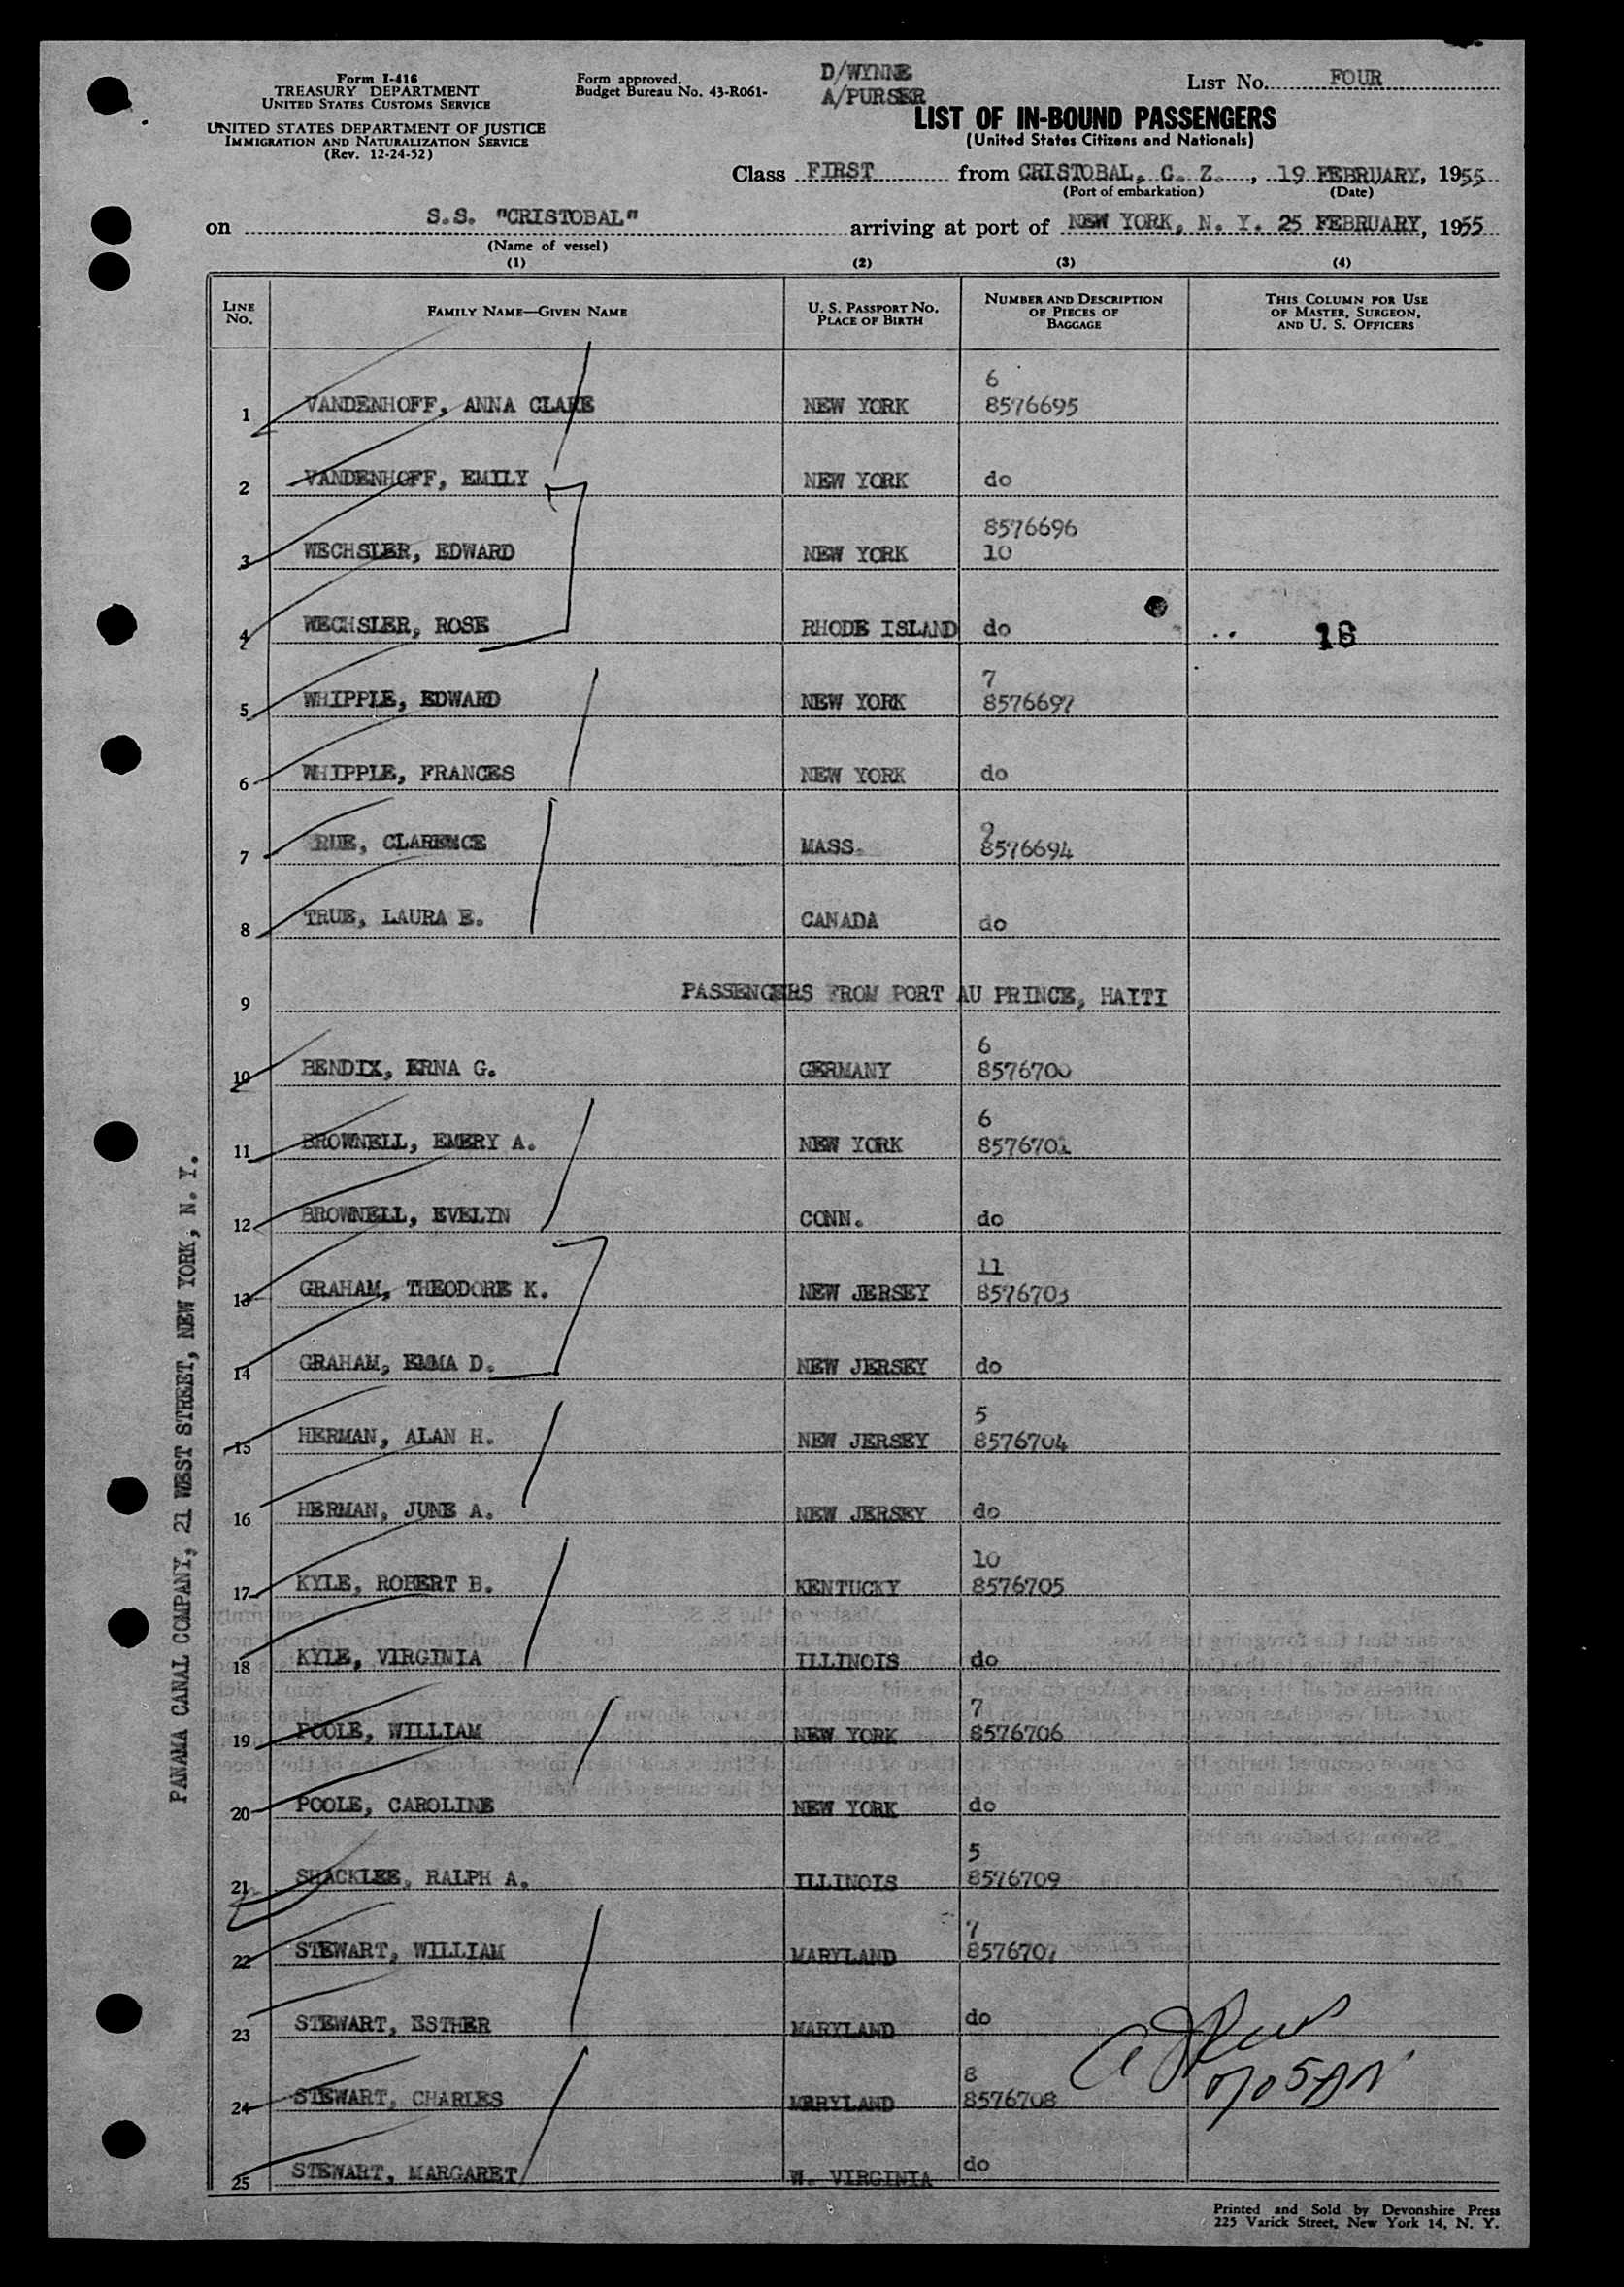 Form I-416
TREASURY DEPARTMENT
UNITED STATES CUSTOMS SERVICE
UNITED STATES DEPARTMENT OF JUSTICE
IMMIGRATION AND NATURALIZATION SERVICE
(Rev. 12-24-52)
Form approved.
Budget Bureau No. 43-R061-
D/WYNNE
A/PURSER
LIST No. FOUR
LIST OF IN-BOUND PASSENGERS
(United States Citizens and Nationals)
Class FIRST from CRISTOBAL, C. Z., 19 FEBRUARY, 1955
(Port of embarkation) (Date)
on S.S. "CRISTOBAL" arriving at port of NEW YORK, N. Y. 25 FEBRUARY, 1955
(Name of vessel)
(1) (2) (3) (4)
LINE No. FAMILY NAME—GIVEN NAME U. S. PASSPORT No. PLACE OF BIRTH NUMBER AND DESCRIPTION OF PIECES OF BAGGAGE THIS COLUMN FOR USE OF MASTER, SURGEON, AND U. S. OFFICERS
6
1 VANDENHOFF, ANNA CLARE NEW YORK 8576695
2 VANDENHOFF, EMILY NEW YORK do
8576696
3 WECHSLER, EDWARD NEW YORK 10
4 WECHSLER, ROSE RHODE ISLAND do 16
7
5 WHIPPLE, EDWARD NEW YORK 8576697
6 WHIPPLE, FRANCES NEW YORK do
9
7 TRUE, CLARENCE MASS. 8576694
8 TRUE, LAURA E. CANADA do
9 PASSENGERS FROM PORT AU PRINCE, HAITI
6
10 BENDIX, ERNA G. GERMANY 8576700
6
11 BROWNELL, EMERY A. NEW YORK 8576701
12 BROWNELL, EVELYN CONN. do
11
13 GRAHAM, THEODORE K. NEW JERSEY 8576703
14 GRAHAM, EMMA D. NEW JERSEY do
5
15 HERMAN, ALAN H. NEW JERSEY 8576704
16 HERMAN, JUNE A. NEW JERSEY do
10
17 KYLE, ROBERT B. KENTUCKY 8576705
18 KYLE, VIRGINIA ILLINOIS do
7
19 POOLE, WILLIAM NEW YORK 8576706
20 POOLE, CAROLINE NEW YORK do
5
21 SHACKLEE, RALPH A. ILLINOIS 8576709
7
22 STEWART, WILLIAM MARYLAND 8576707
23 STEWART, ESTHER MARYLAND do
8
24 STEWART, CHARLES MARYLAND 8576708
25 STEWART, MARGARET W. VIRGINIA do
PANAMA CANAL COMPANY, 21 WEST STREET, NEW YORK, N. Y.
Printed and Sold by Devonshire Press
225 Varick Street, New York 14, N. Y.